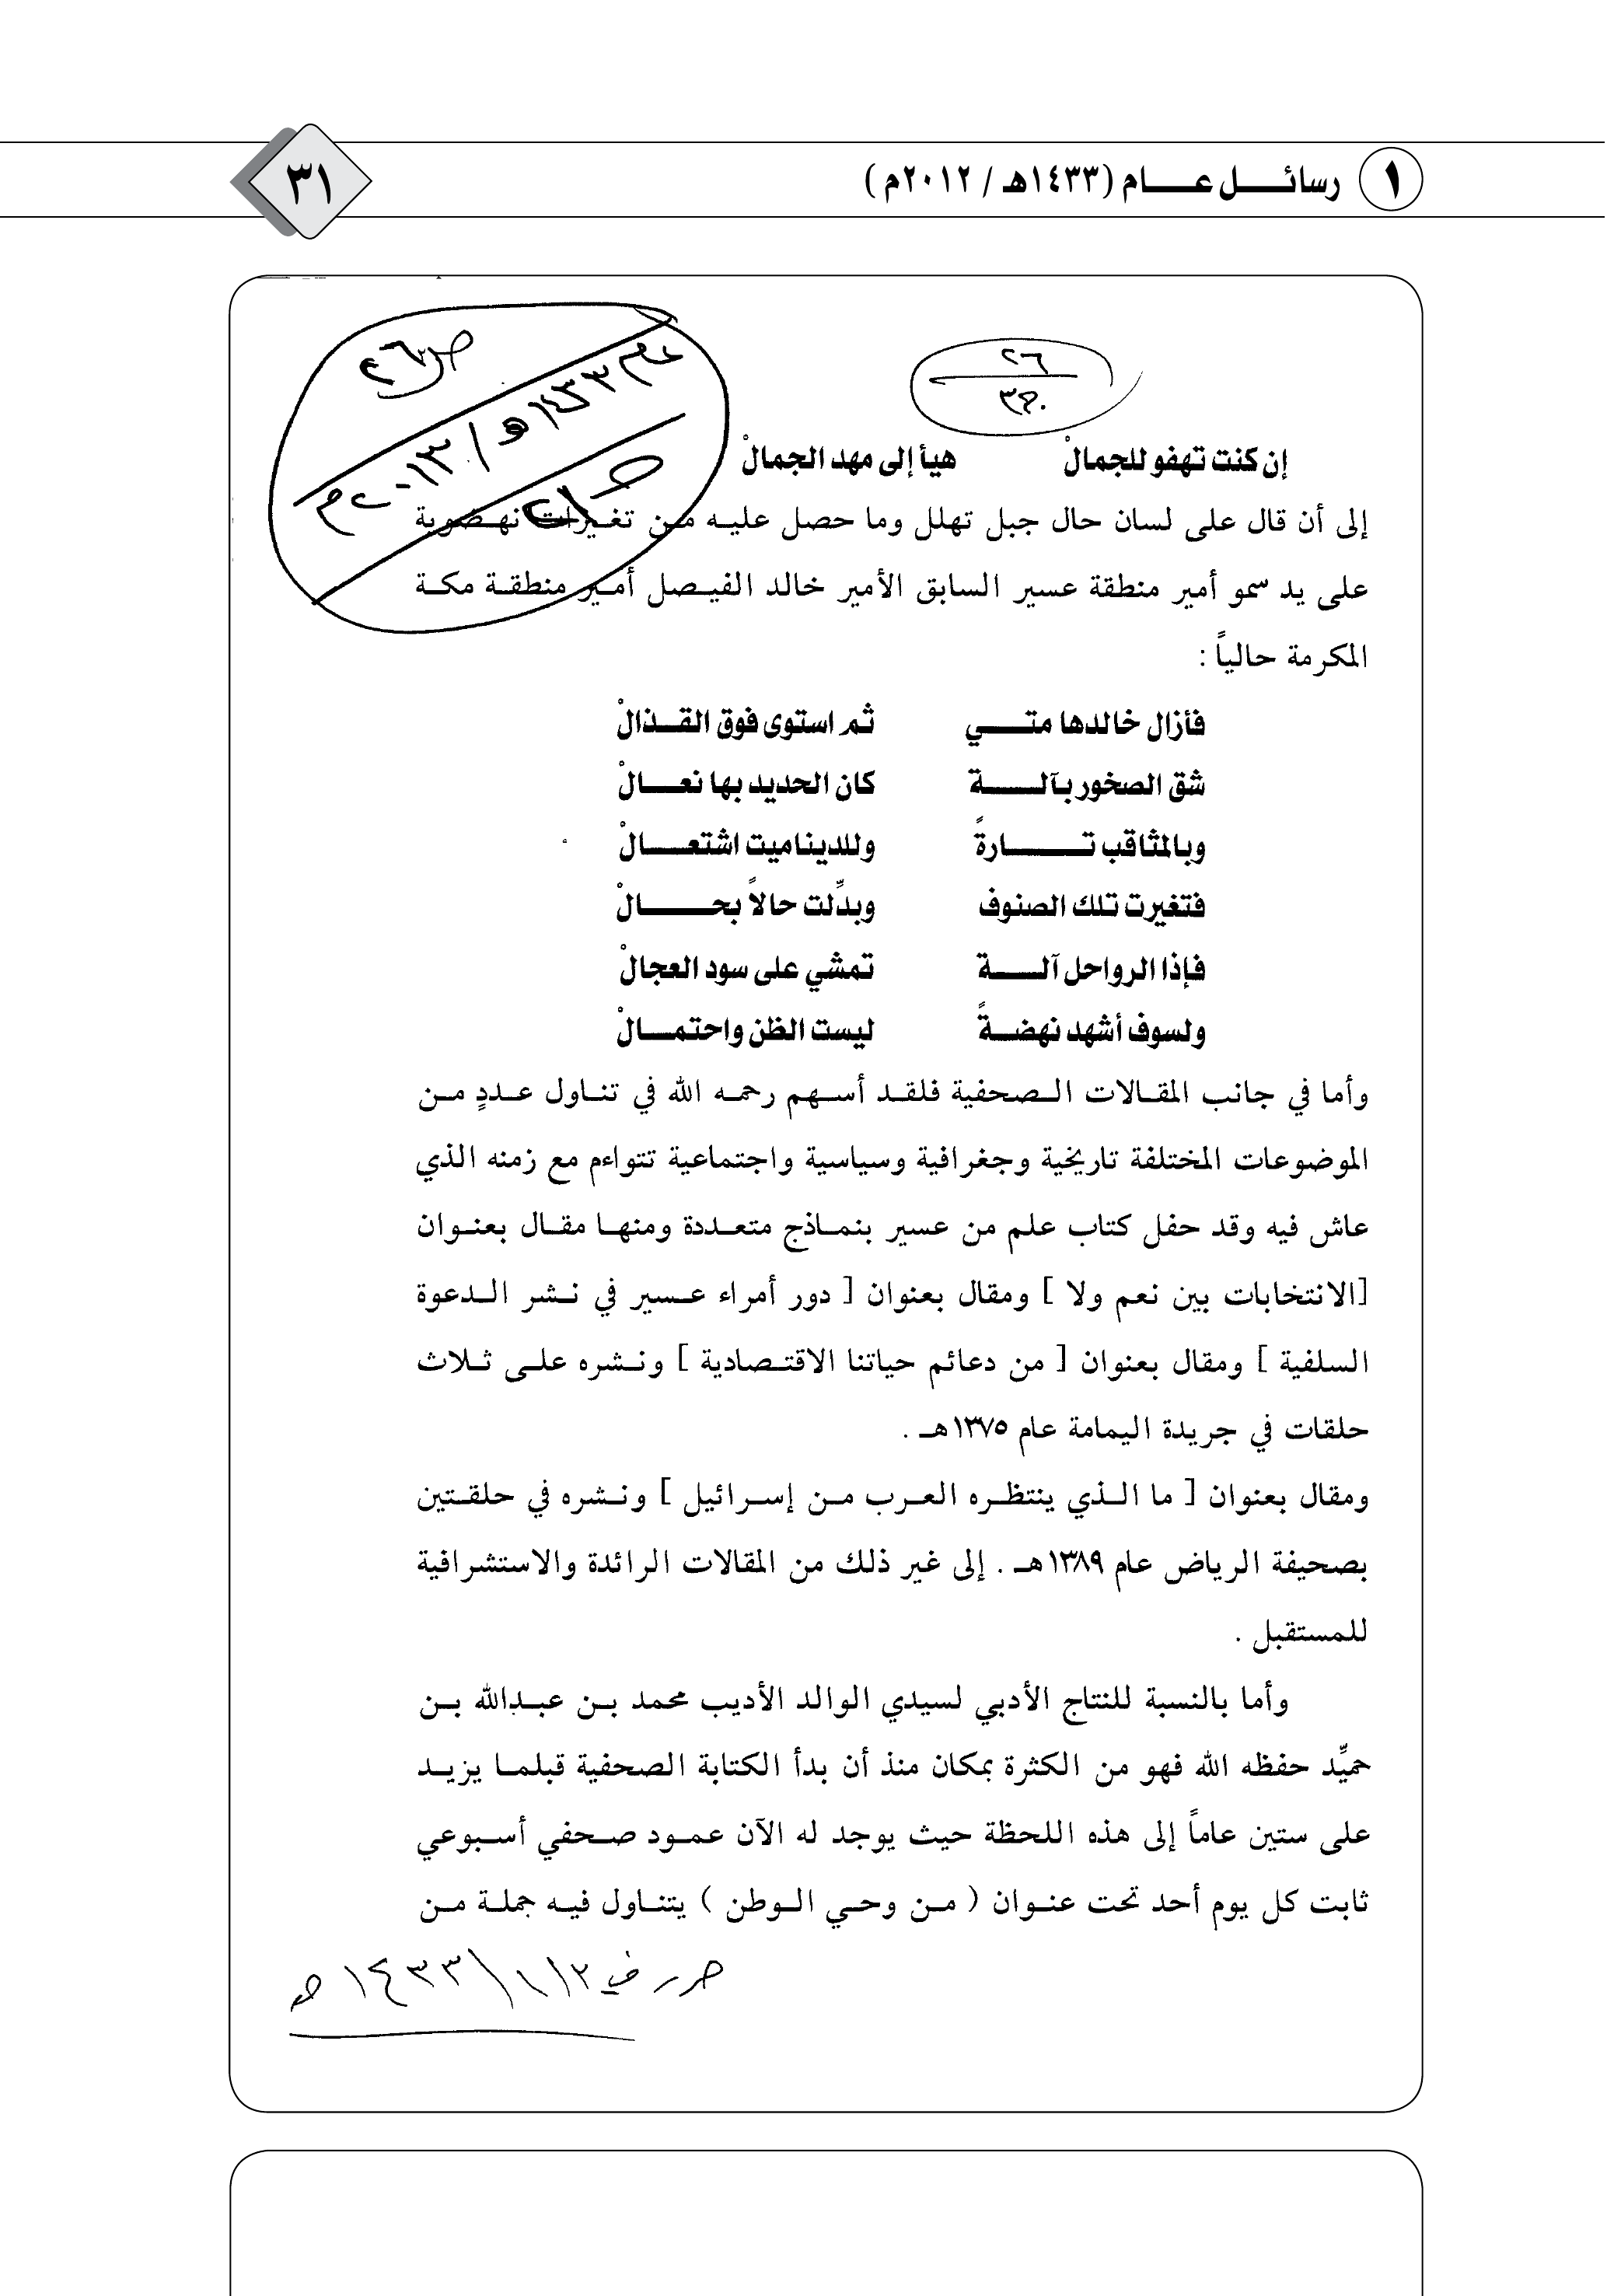 ١ رسائل عام (١٤٣٣هـ / ٢٠١٢م) ٣١
٢٦
٣٠
عام ١٤٣٣هـ / ٢٠١٣م
إن كنت تهفو للجمالْ هيأ إلى مهد الجمالْ
إلى أن قال على لسان حال جبل تهلل وما حصل عليه من تغيرات نهضوية
على يد سمو أمير منطقة عسير السابق الأمير خالد الفيصل أمير منطقة مكة
المكرمة حالياً :
فأزال خالدها متي ثم استوى فوق القذالْ
شق الصخور بآلة كان الحديد بها نعالْ
وبالمثاقب تارةً وللديناميت اشتعالْ
فتغيرت تلك الصنوف وبدِّلت حالاً بحالْ
فإذا الرواحل آلة تمشي على سود العجالْ
ولسوف أشهد نهضةً ليست الظن واحتمالْ
وأما في جانب المقالات الصحفية فلقد أسهم رحمه الله في تناول عددٍ من
الموضوعات المختلفة تاريخية وجغرافية وسياسية واجتماعية تتواءم مع زمنه الذي
عاش فيه وقد حفل كتاب علم من عسير بنماذج متعددة ومنها مقال بعنوان
[الانتخابات بين نعم ولا ] ومقال بعنوان [ دور أمراء عسير في نشر الدعوة
السلفية ] ومقال بعنوان [ من دعائم حياتنا الاقتصادية ] ونشره على ثلاث
حلقات في جريدة اليمامة عام ١٣٧٥هـ .
ومقال بعنوان [ ما الذي ينتظره العرب من إسرائيل ] ونشره في حلقتين
بصحيفة الرياض عام ١٣٨٩هـ . إلى غير ذلك من المقالات الرائدة والاستشرافية
للمستقبل .
وأما بالنسبة للنتاج الأدبي لسيدي الوالد الأديب محمد بن عبدالله بن
حميِّد حفظه الله فهو من الكثرة بمكان منذ أن بدأ الكتابة الصحفية قبلما يزيد
على ستين عاماً إلى هذه اللحظة حيث يوجد له الآن عمود صحفي أسبوعي
ثابت كل يوم أحد تحت عنوان ( من وحي الوطن ) يتناول فيه جملة من
حرر في ١/٢/ ١٤٣٣هـ